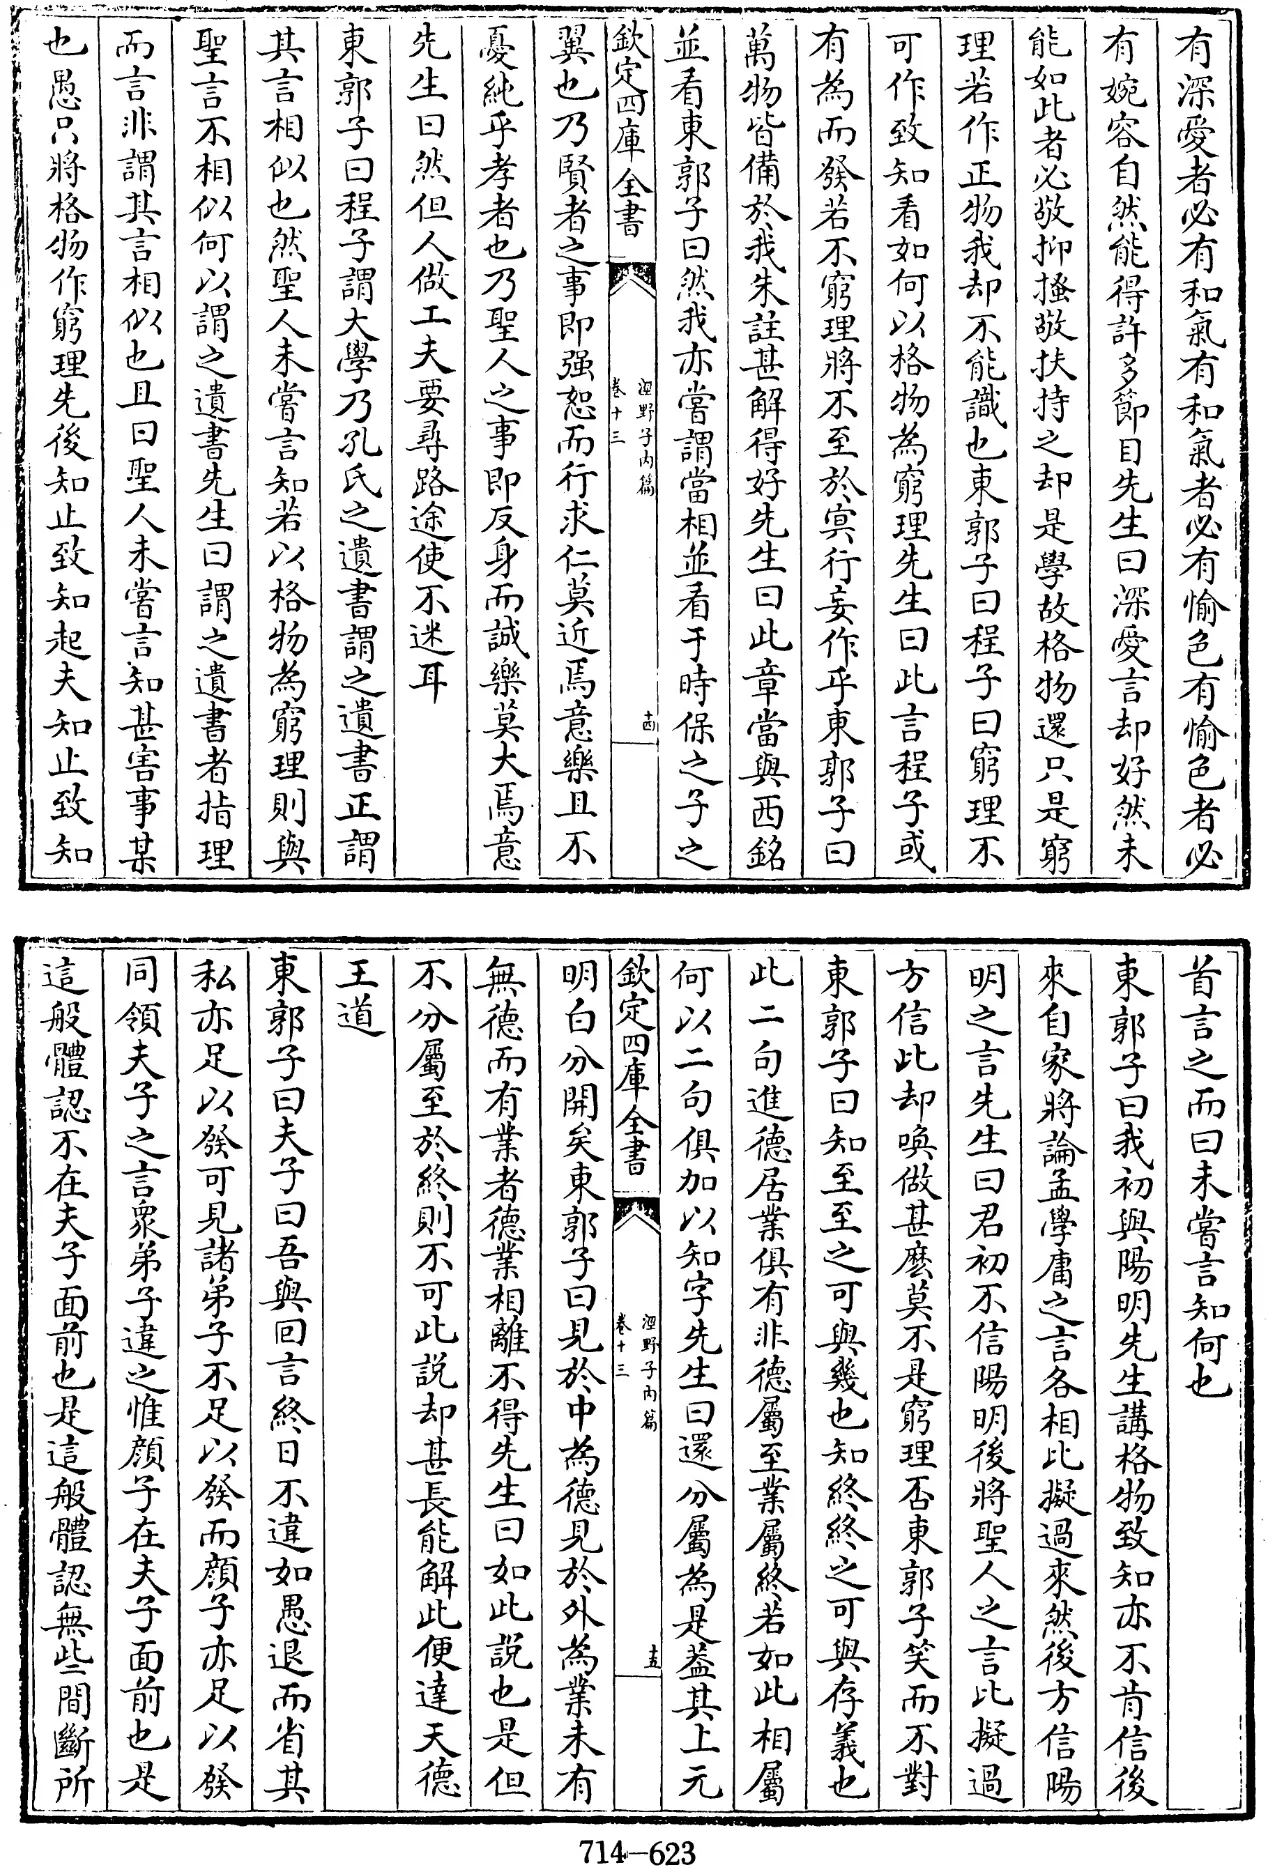 有深愛者必有和氣有和氣者必有愉色有愉色者必
有婉容自然能得許多節目先生曰深愛言却好然未
能如此者必敬抑搔敬扶持之却是學故格物還只是窮
理若作正物我却不能識也東郭子曰程子曰窮理不
可作致知看如何以格物為窮理先生曰此言程子或
有為而發若不窮理將不至於冥行妄作乎東郭子曰
萬物皆備於我朱註甚解得好先生曰此章當與西銘
並看東郭子曰然我亦嘗謂當相並看于時保之子之
欽定四庫全書
涇野子內篇
卷十三
十四
翼也乃賢者之事即强恕而行求仁莫近焉意樂且不
憂純乎孝者也乃聖人之事即反身而誠樂莫大焉意
先生曰然但人做工夫要尋路途使不迷耳
東郭子曰程子謂大學乃孔氏之遺書謂之遺書正謂
其言相似也然聖人未嘗言知若以格物為窮理則與
聖言不相似何以謂之遺書先生曰謂之遺書者指理
而言非謂其言相似也且曰聖人未嘗言知甚害事某
也愚只將格物作窮理先後知止致知起夫知止致知
首言之而曰未嘗言知何也
東郭子曰我初與陽明先生講格物致知亦不肯信後
來自家將論孟學庸之言各相比擬過來然後方信陽
明之言先生曰君初不信陽明後將聖人之言比擬過
方信此却喚做甚麽莫不是窮理否東郭子笑而不對
東郭子曰知至至之可與幾也知終終之可與存義也
此二句進德居業俱有非德屬至業屬終若如此相屬
何以二句俱加以知字先生曰還分屬為是葢其上元
欽定四庫全書
涇野子內篇
卷十三
十五
明白分開矣東郭子曰見於中為德見於外為業未有
無德而有業者德業相離不得先生曰如此說也是但
不分屬至於終則不可此說却甚長能解此便達天德
王道
東郭子曰夫子曰吾與回言終日不違如愚退而省其
私亦足以發可見諸弟子不足以發而顔子亦足以發
同領夫子之言衆弟子違之惟顔子在夫子面前也是
這般體認不在夫子面前也是這般體認無些間斷所
714-623